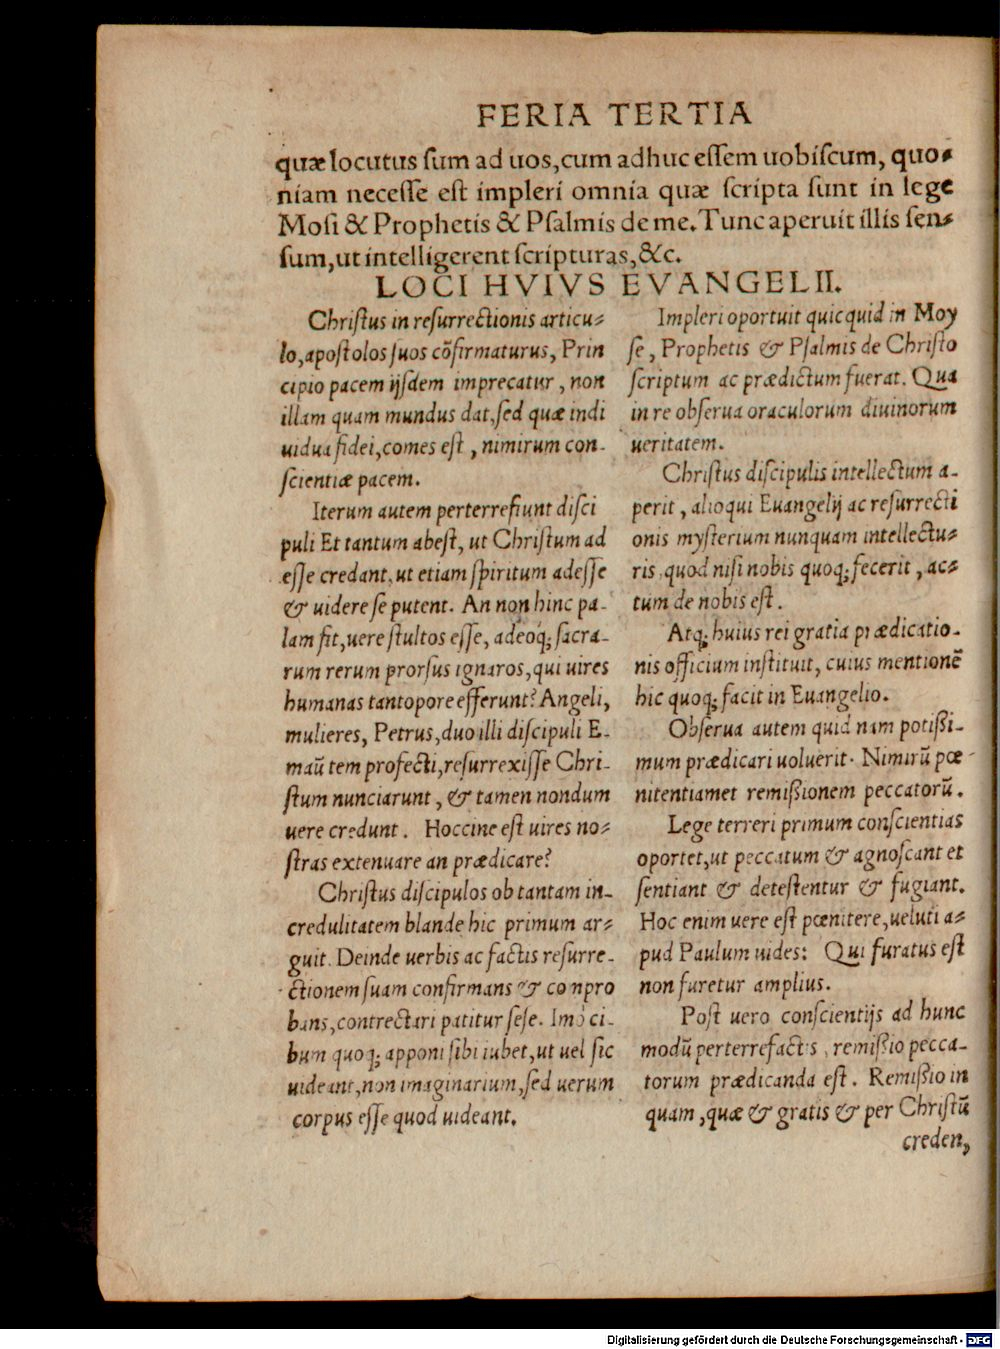 FERIA TERTIA
quæ locutus sum ad uos, cum adhuc essem uobiscum, quo-
niam necesse est impleri omnia quæ scripta sunt in lege
Mosi & Prophetis & Psalmis de me. Tunc aperuit illis sen-
sum, ut intelligerent scripturas, &c.
LOCI HVIVS EVANGELII.
Christus in resurrectionis articu-
lo, apostolos suos cõfirmaturus, Prin
cipio pacem ijsdem imprecatur, non
illam quam mundus dat, sed quæ indi
uidua fidei, comes est, nimirum con-
scientiæ pacem.
Iterum autem perterrefiunt disci
puli Et tantum abest, ut Christum ad
esse credant, ut etiam spiritum adesse
& uidere se putent. An non hinc pa-
lam fit, uere stultos esse, adeoq; sacra-
rum rerum prorsus ignaros, qui uires
humanas tantopore efferunt? Angeli,
mulieres, Petrus, duo illi discipuli E-
maũtem profecti, resurrexisse Chri-
stum nunciarunt, & tamen nondum
uere credunt. Hoccine est uires no-
stras extenuare an prædicare?
Christus discipulos ob tantam in-
credulitatem blande hic primum ar-
guit. Deinde uerbis ac factis resurre-
ctionem suam confirmans & conpro
bans, contrectari patitur sese. Imò ci-
bum quoq; apponi sibi iubet, ut uel sic
uideant, non imaginarium, sed uerum
corpus esse quod uideant.
Impleri oportuit quicquid in Moy
se, Prophetis & Psalmis de Christo
scriptum ac prædictum fuerat. Qua
in re obserua oraculorum diuinorum
ueritatem.
Christus discipulis intellectum a-
perit, alioqui Euangelij ac resurrecti
onis mysterium nunquam intellectu-
ris, quod nisi nobis quoq; fecerit, ac-
tum de nobis est.
Atq; huius rei gratia prædicatio-
nis officium instituit, cuius mentionẽ
hic quoq; facit in Euangelio.
Obserua autem quid nam potißi-
mum prædicari uoluerit. Nimirũ pœ-
nitentiam et remißionem peccatorũ.
Lege terreri primum conscientias
oportet, ut peccatum & agnoscant et
sentiant & detestentur & fugiant.
Hoc enim uere est pœnitere, ueluti a-
pud Paulum uides: Qui furatus est
non furetur amplius.
Post uero conscientijs ad hunc
modũ perterrefactis, remißio pecca-
torum prædicanda est. Remißio in
quam, quæ & gratis & per Christũ
creden,
Digitalisierung gefördert durch die Deutsche Forschungsgemeinschaft - DFG